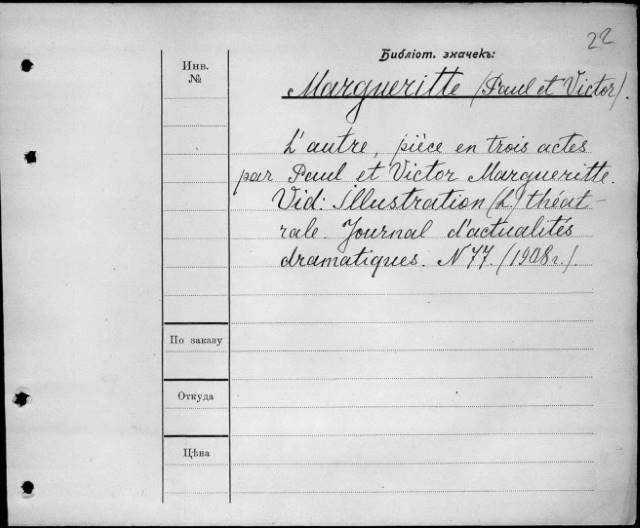 22
Библіот. значекъ:
Инв.
№
Margueritte (Paul et Victor).
L'autre, pièce en trois actes
par Paul et Victor Margueritte.
Vid: Illustration (L.) théat-
rale. Journal d'actualités
dramatiques. N 77. (1908 г.)
По заказу
Откуда
Цѣна